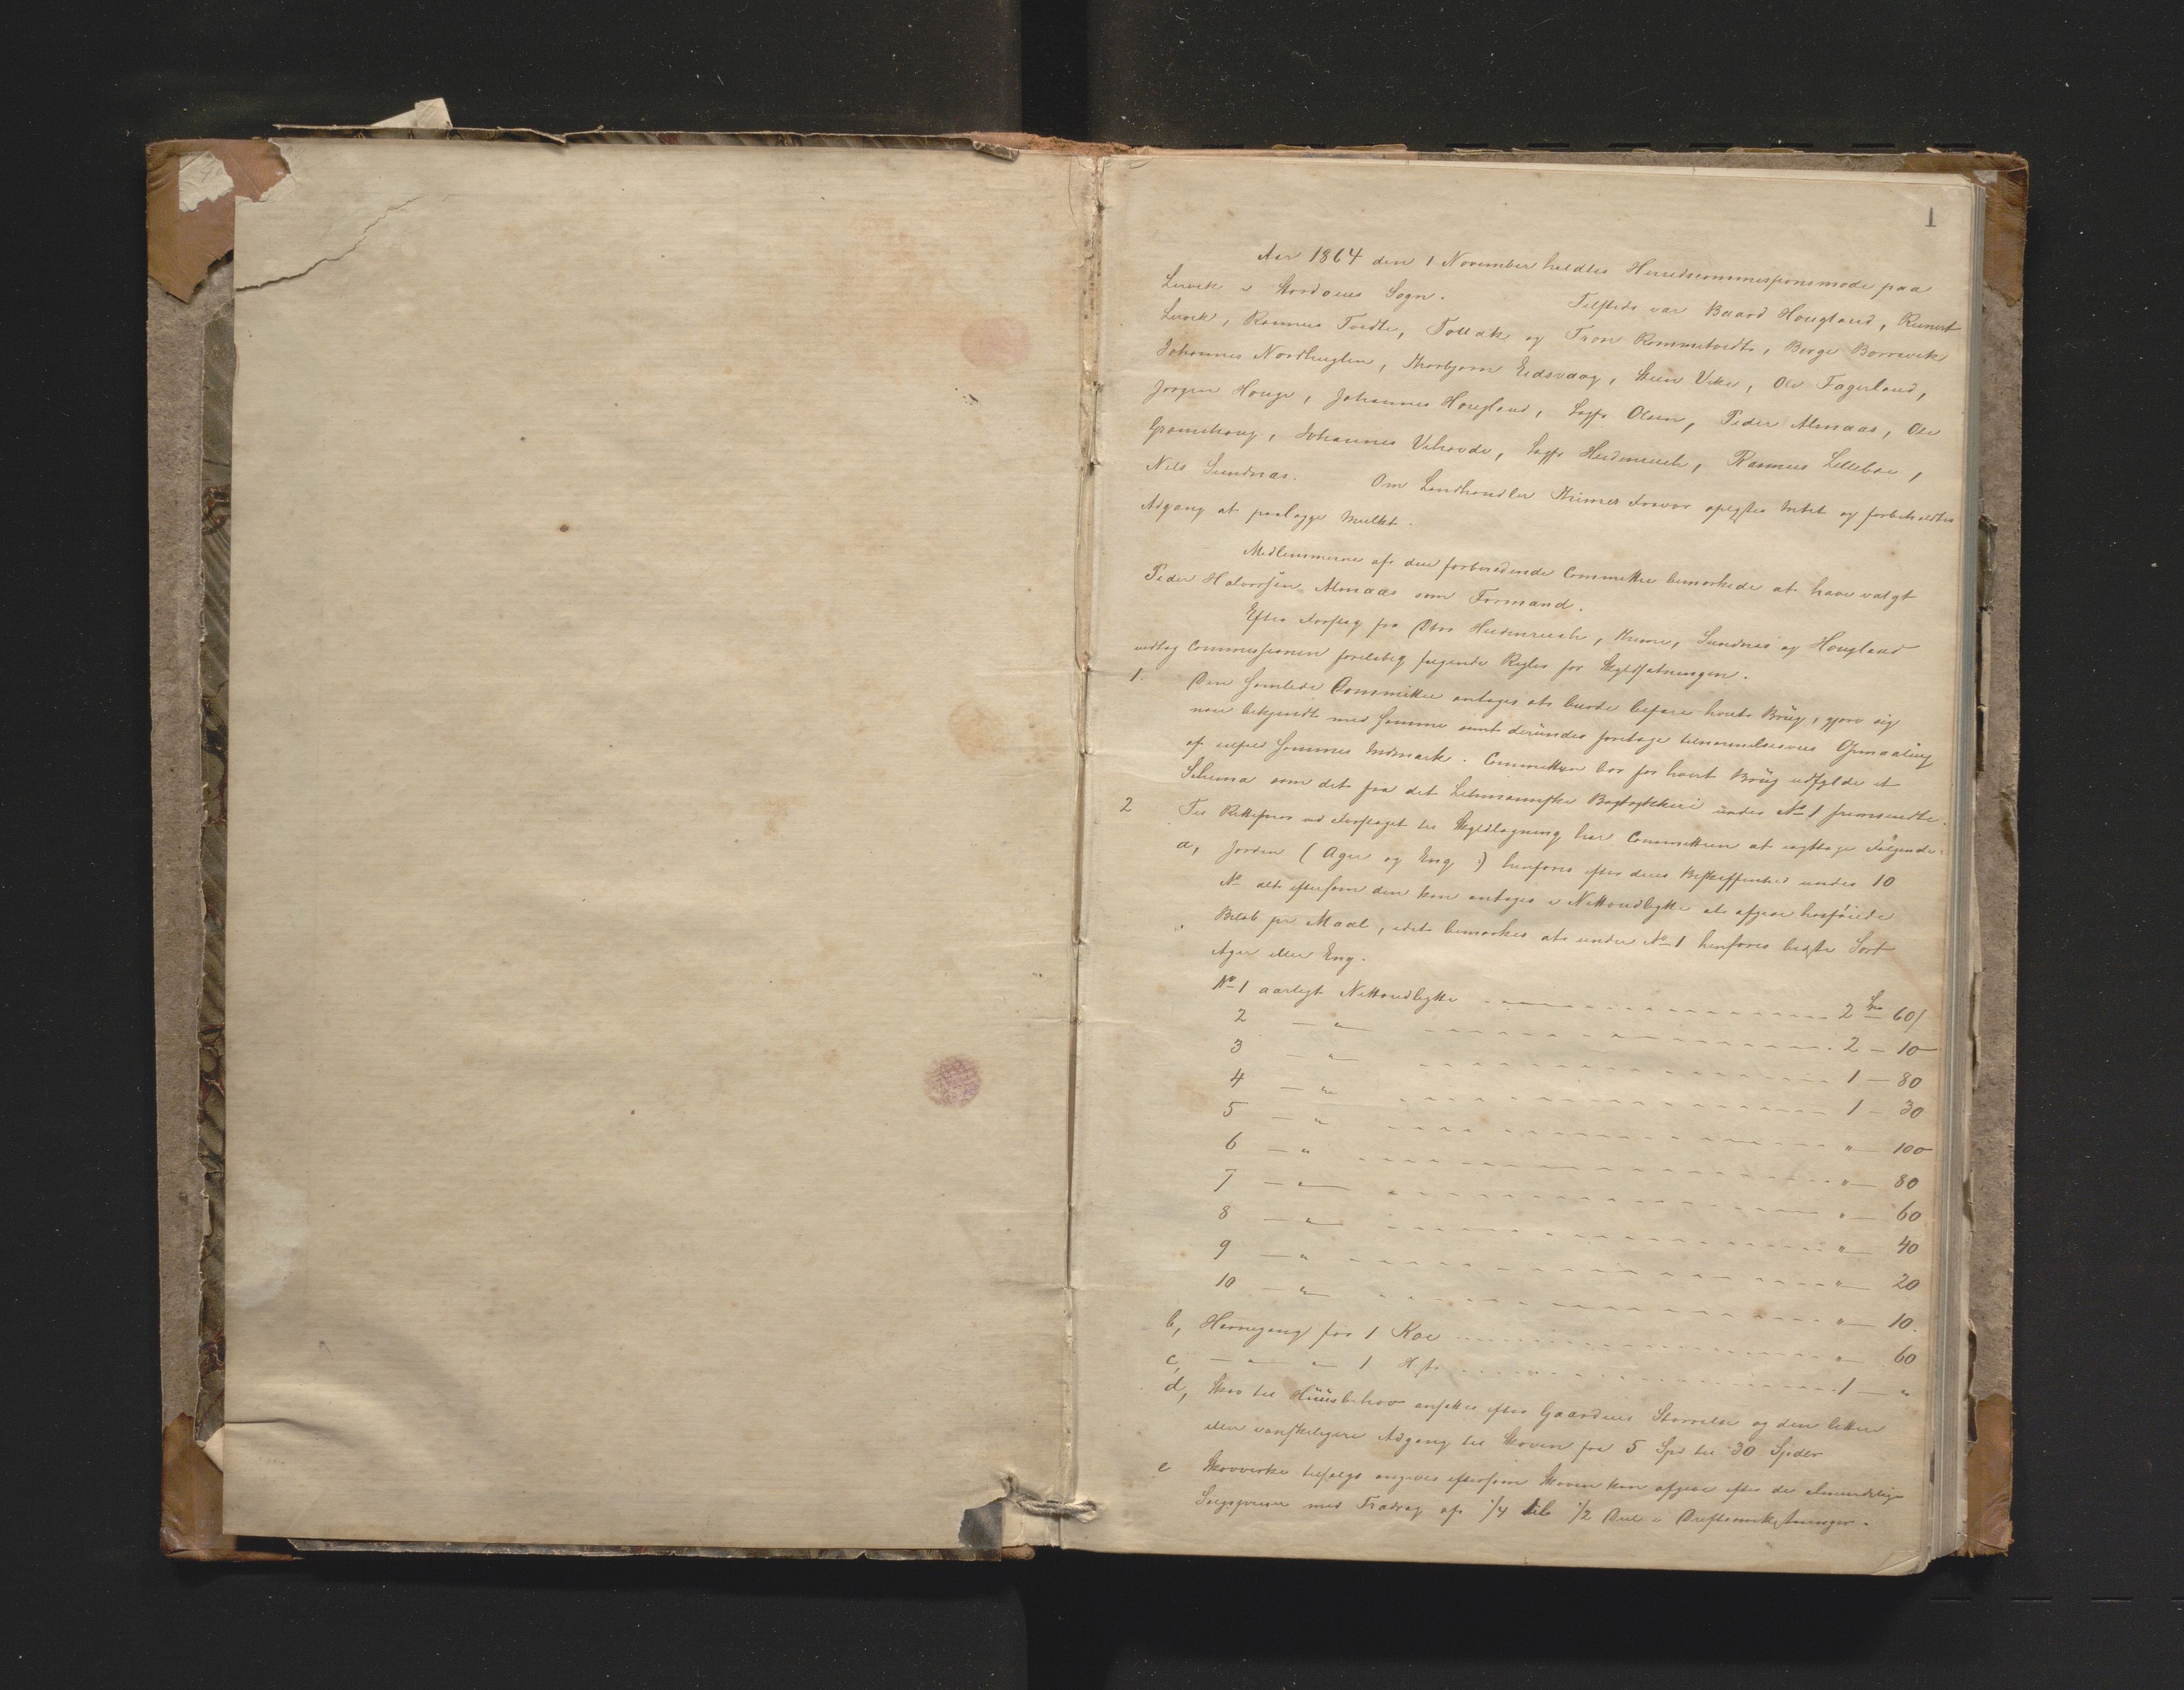 1
Aar 1864 den 1 November holdtes Herredscommissionsmøde paa
Lervik i Stordøens Sogn. Tilstede var Baard Hougland, Reinert
Lervik, Rasmus Tvedte, Tollak og Tron Rommetvedt, Børge Børrevik
Johannes Nordhuglen, Thorbjørn Eidsvaag, Steen Vike, Ole Fagerland,
Jørgen Houge, Johannes Hougland, Ole Olsen, Peder Almaas, Ole
Grønehoug, Johannes Vihovde, Heidenreich, Rasmus Lillebøe,
Nils Sundnæs. Om Landhandler Fravær oplystes Intet og forbeholdtes
Adgang at paalægge Mulkt.
Medlemmerne af den forberedende Committee bemærkede at have valgt
Peder Halvorsen Almaas som Formand.
Efter Forslag fra Dhrr Heidenreich, Sundnæs og Hougland
vedtog Commissionen foreløbig følgende Regler for Skyldsætningen.
1. Den samlede Committee antages at burde befare hvert Brüg, gjøre sig
nøie bekjendt med samme samt deründer foretage tilnærmelsesvis Opmaaling
af sammes Indmark. Committeen bør for hvert Brüg udfylde et
Schema som det fra det Lehmannske Bogtrykkeri ünder No 1 fremsendte.
2 Til Rettesnor ved Forslaget til Skyldlægning har Committeen at iagttage Følgende:
a, Jorden (Ager og Eng:) henføres efter dens Beskaffenhed under 10
No alt eftersom den kan antages i Nettoudbytte at afgive hosføiede
Beløb pr Maal, idet bemærkes at under No 1 henføres bedste Sort
Ager eller Eng.
No 1 aarligt Nettoudbytte - - - 2 Spd 60/
2 — " — - - - 2 — 10
3 — " — - - - 1 — 80
4 — " - - - 1 — 30
5 — " - - - " — 100
6 — " - - - " — 80
7 — " — - - - " — 60
8 — " — - - - " — 40
9 — " - - - " — 20
10 — " — - - - " — 10.
b, Havnegang for 1 Koe - - - " — 60
c, — " — " 1 Hest - - - 1 — "
d, Skov til Hüüsbehov ansættes efter Gaardens Størrelse og den lettere
eller vanskeligere Adgang til Skoven fra 5 Spd til 30 Spdlr
e Skovvirke tilsalgs angives eftersom Skoven kan afgive efter de almindelige
Salgspriser med Fradrag af 1/4 til 1/2 Deel i Driftsomkostninger.